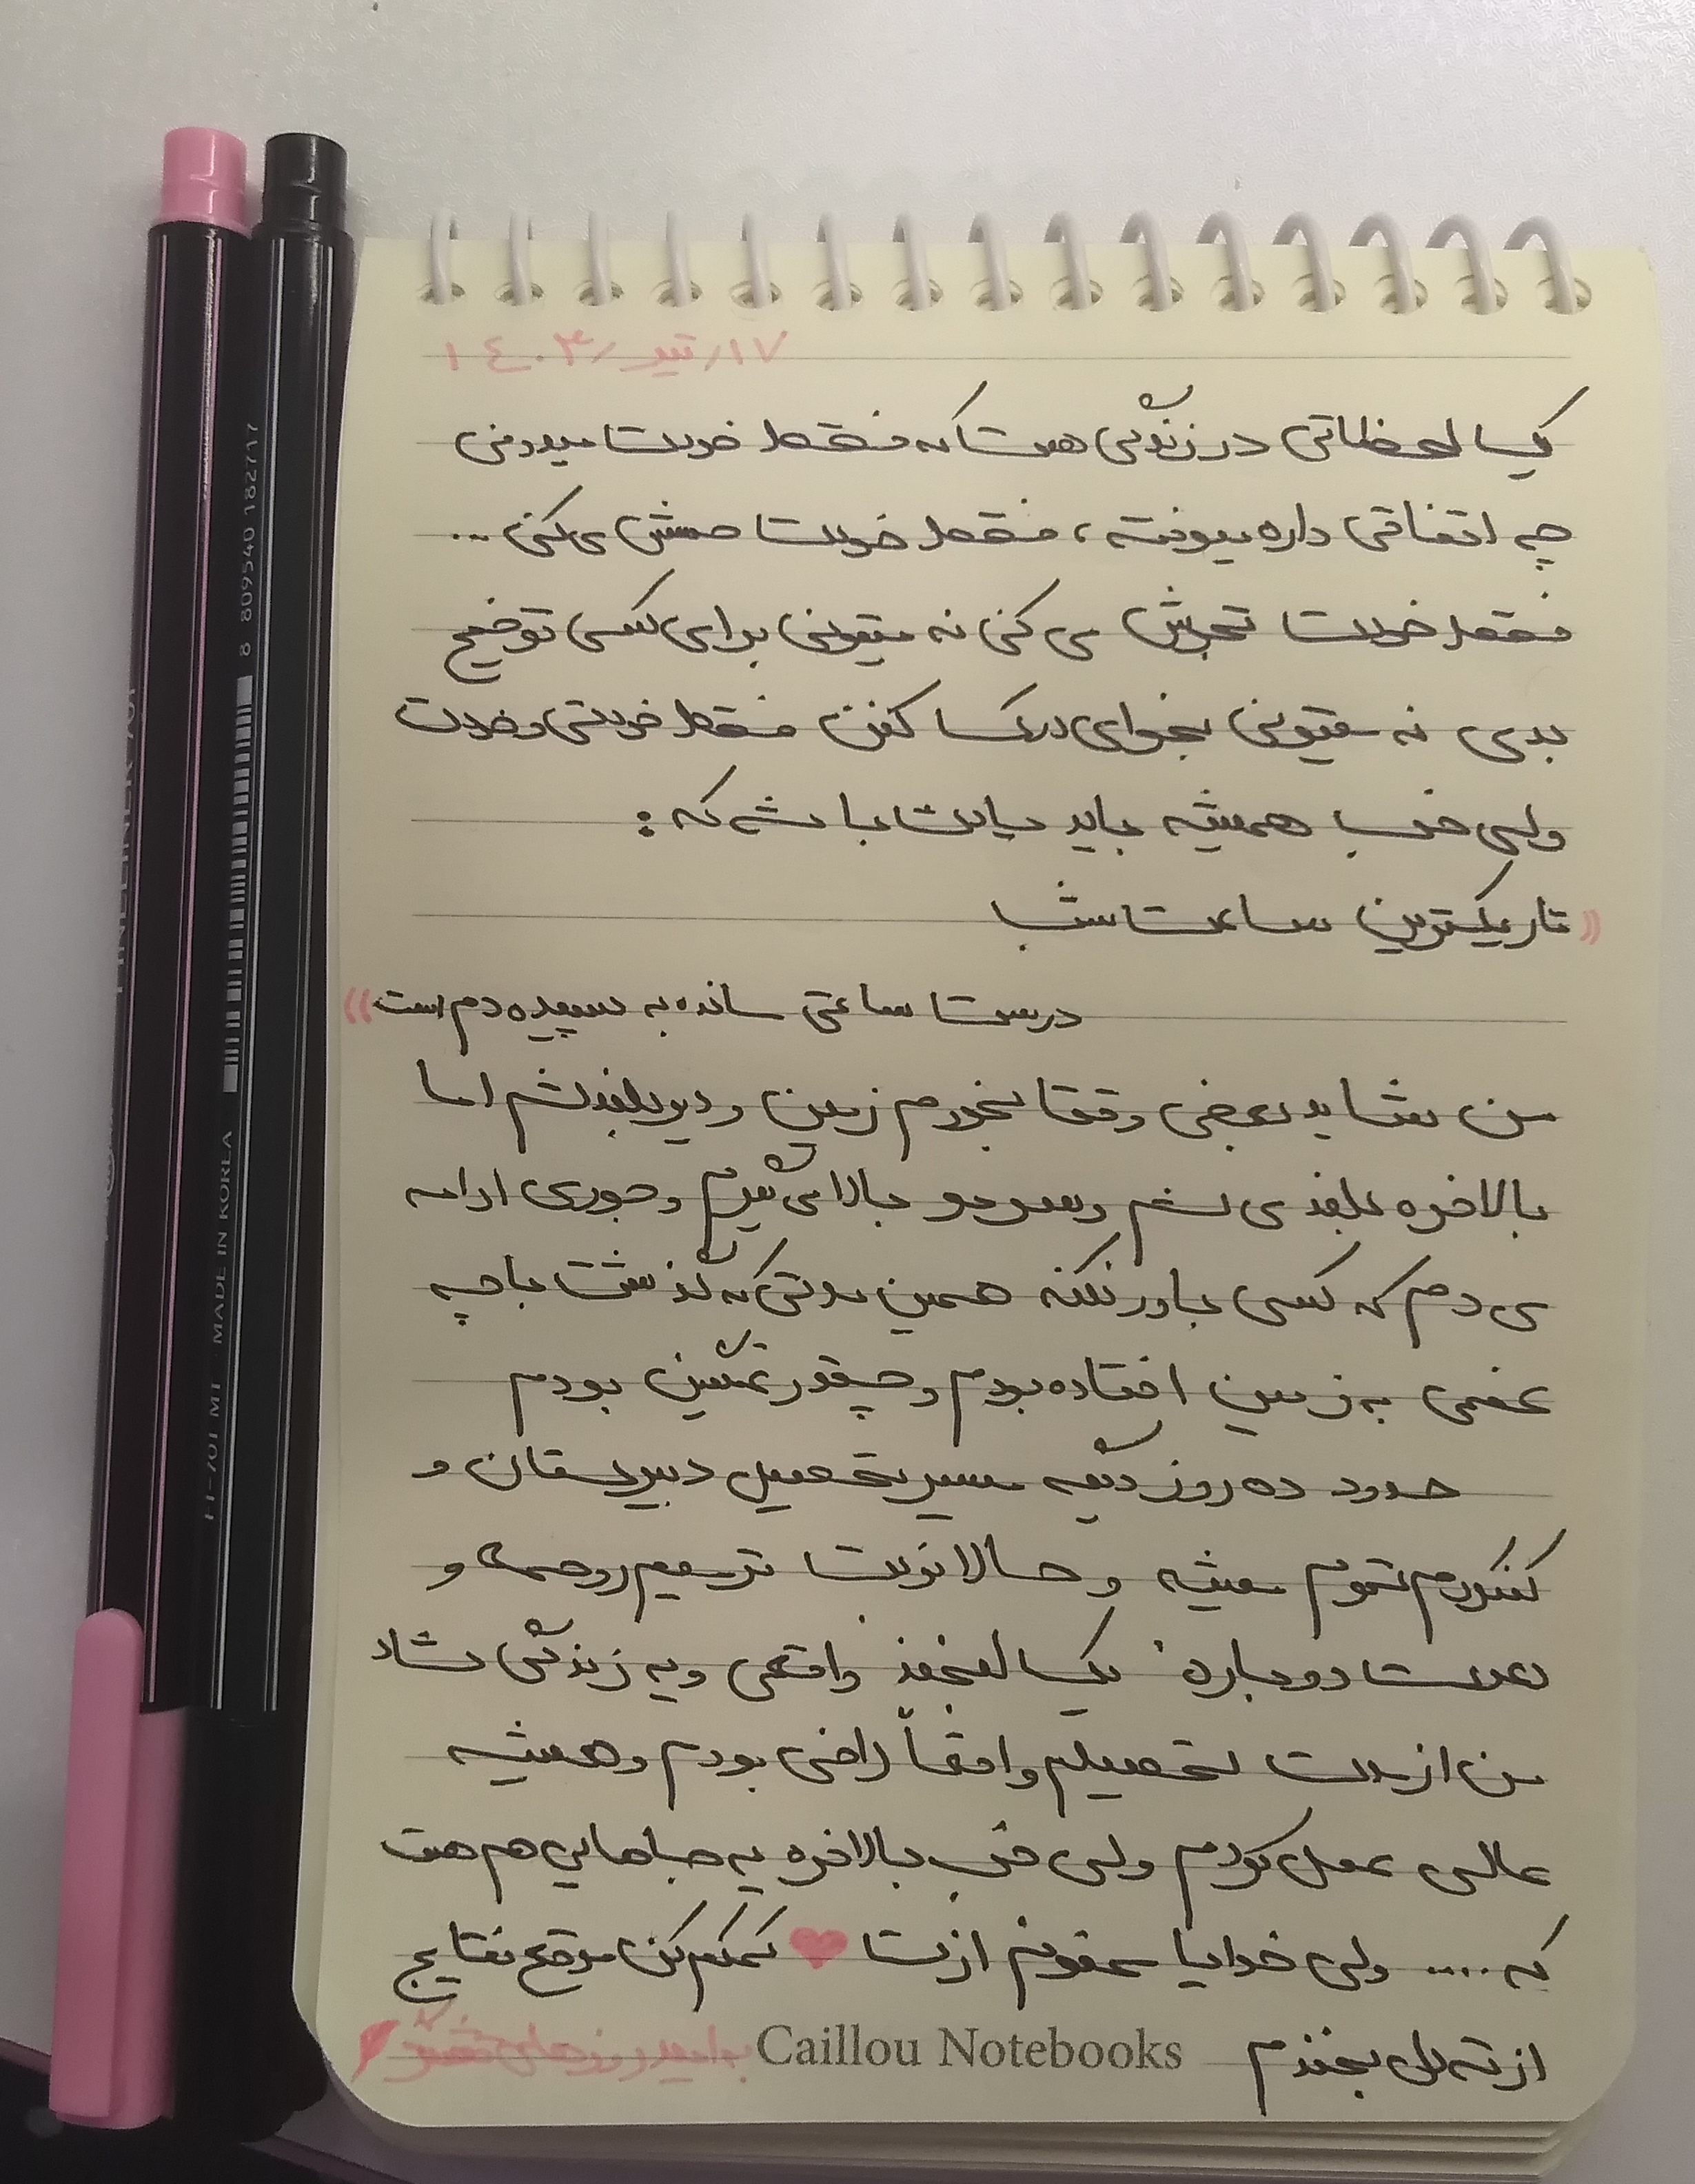 ۱۷/تیر/۱۴۰۳
یک لحظاتی در زندگی هست که فقط خودت میدونی
چه اتفاقی داره میوفته، فقط خودت حسش می کنی ...
فقط خودت تجربش می کنی نه میتونی برای کسی توضیح
بدی نه میتونی بخوای درکت کنن فقط خودتی و خودت
ولی خب همیشه باید یادت باشه که :
«تاریکترین ساعت شب
درست ساعتی مانده به سپیده دم است»
من شاید بعضی وقتا بخورم زمین و دیر بلند شم اما
بالاخره بلند می شم و سرمو بالا می گیرم و جوری ادامه
می دم که کسی باور نکنه همین مدتی که گذشت با چه
غمی به زمین افتاده بودم و چقدر غمگین بودم
حدود ده روز دیگه مسیر تحصیل دبیرستان و
کنکورم تموم میشه و حالا نوبت ترمیم روحمه و
بعدست دوباره یک لبخند واقعی و یه زندگی شاد
من از مدت تحصیلم واقعاً راضی بودم و همیشه
عالی عمل کردم ولی خب بالاخره یه جاهایی هم هست
که .... ولی خدایا ممنونم ازت کمکم کن موقع نتایج
از ته دل بخندم
به امید روزهای قشنگ
Caillou Notebooks
8 809540 182717
MADE IN KOREA